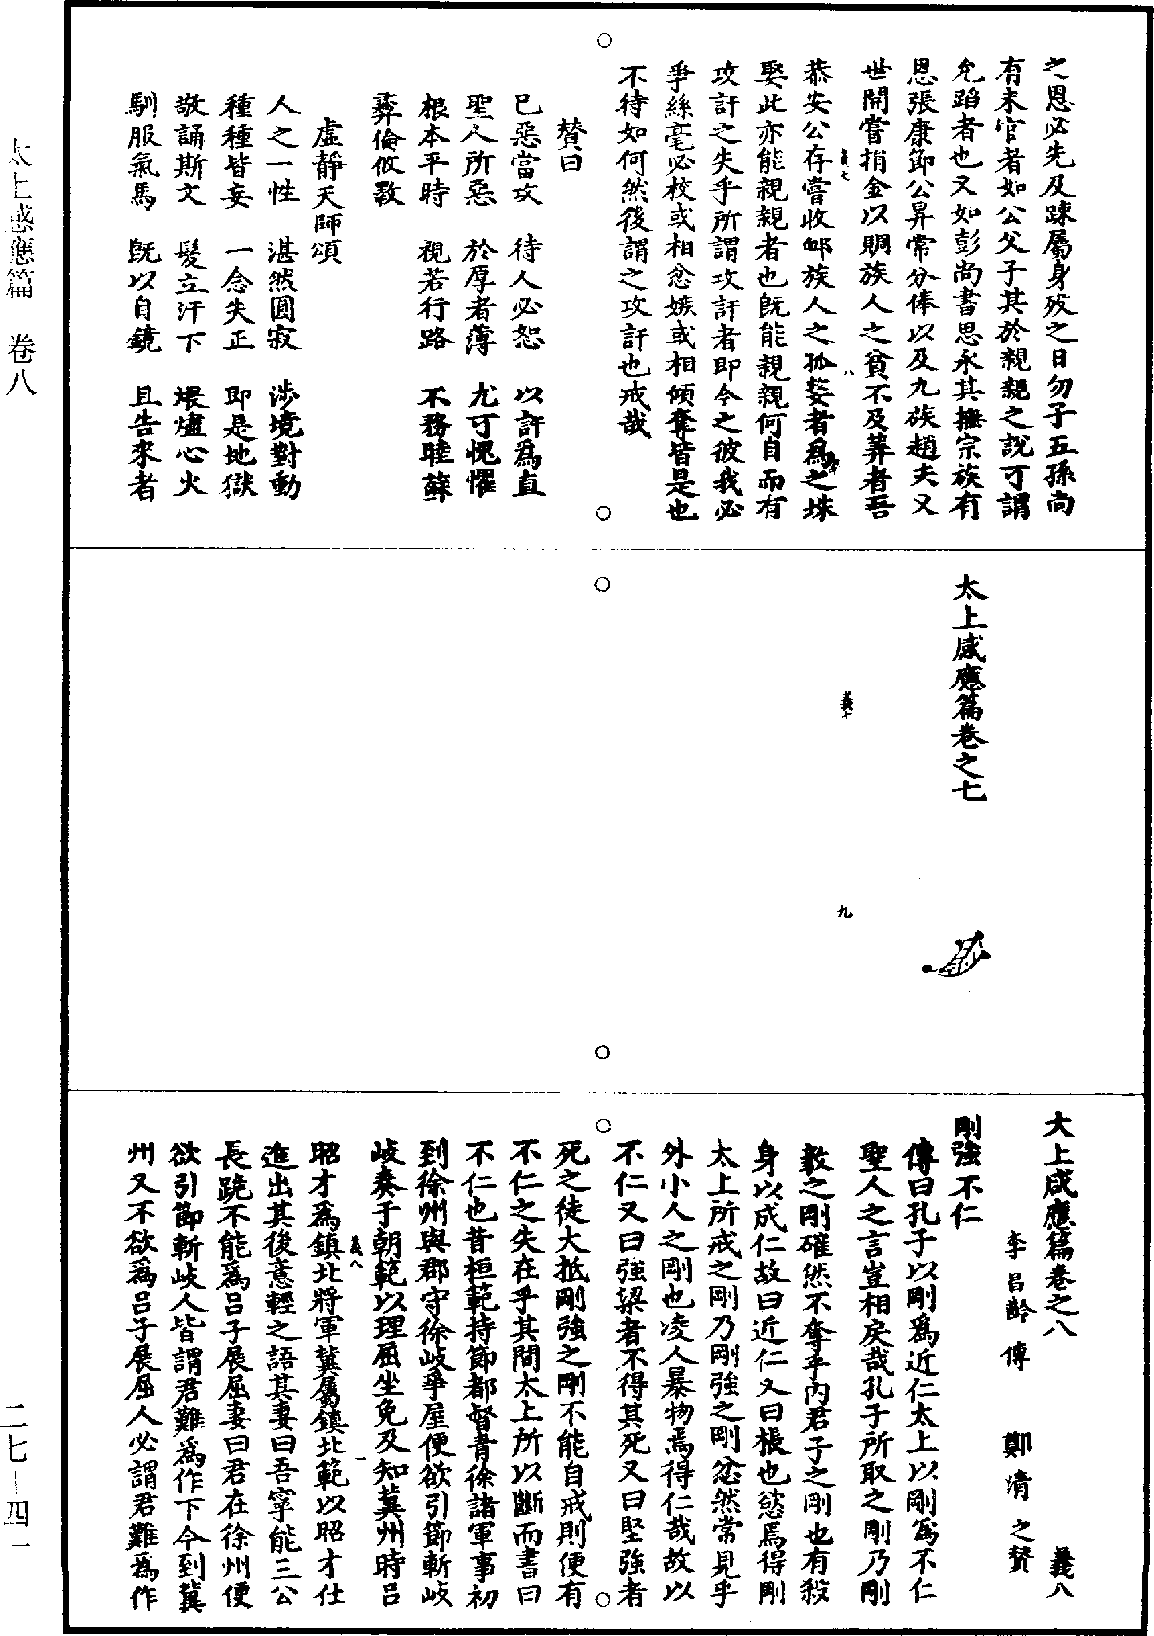 之恩必先及踈屬身歿之日勿子五孫尚
有未官者如公父子其於親親之說可謂
允蹈者也又如彭尚書思永其撫宗族有
恩張康節公昇常分俸以及九族趙夫又
世開嘗捐金以賙族人之貧不及葬者吾
恭安公存嘗收邺族人之孤嫠者為之垜
娶此亦能親親者也既能親親何自而有
攻訐之失乎所謂攻訐者即今之彼我必
爭絲毫必校或相忿嫉或相傾奪皆是也
不待如何然後謂之攻訐也戒哉
贊曰
已惡當攻 待人必恕 以訐為直
聖人所惡 於厚者薄 尤可愧懼
根本平時 視若行路 不務睦蘇
彞倫攸斁
虛靜天師頌
人之一性 湛然圓寂 涉境對動
種種皆妄 一念失正 即是地獄
敬誦斯文 髮立汗下 煨燼心火
馴服氣馬 既以自鏡 且告來者
八
太上感應篇卷之七
義十
九
太上感應篇卷之八
義八
李昌齡 傳 鄭清之贊
剛強不仁
傳曰孔子以剛為近仁太上以剛為不仁
聖人之言豈相戾哉孔子所取之剛乃剛
毅之剛確然不奪乎內君子之剛也有殺
身以成仁故曰近仁又曰棖也慾焉得剛
太上所戒之剛乃剛強之剛忿然常見乎
外小人之剛也凌人暴物焉得仁哉故以
不仁又曰強梁者不得其死又曰堅強者
死之徒大抵剛強之剛不能自戒則便有
不仁之失在乎其間太上所以斷而書曰
不仁也昔桓範持節都督青徐諸軍事初
到徐州與郡守徐岐爭屋便欲引節斬岐
岐奏于朝範以理屈坐免及知冀州時呂
義八
一
昭才為鎮北將軍冀屬鎮北範以昭才仕
進出其後意輕之語其妻曰吾寧能三公
長跪不能為呂子展屈妻曰君在徐州便
欲引節斬岐人皆謂君難為作下今到冀
州又不欲為呂子展屈人必謂君難為作
太上感應篇 卷八
二七—四一